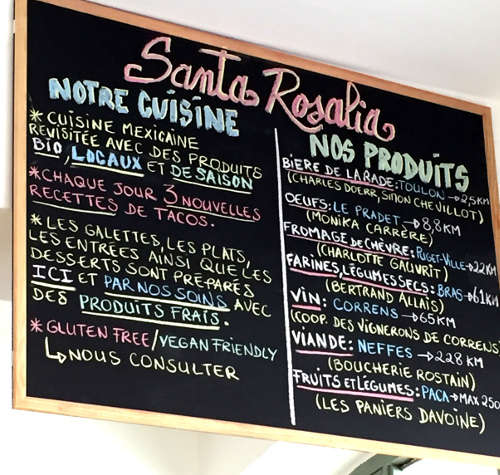 Santa Rosalia
NOTRE CUISINE
* CUISINE MEXICAINE
REVISITÉE AVEC DES PRODUITS
BIO, LOCAUX ET DE SAISON
* CHAQUE JOUR 3 NOUVELLES
RECETTES DE TACOS.
* LES GALETTES, LES PLATS,
LES ENTRÉES AINSI QUE LES
DESSERTS SONT PRÉPARÉS
ICI ET PAR NOS SOINS AVEC
DES PRODUITS FRAIS.
* GLUTEN FREE/VEGAN FRIENDLY
↳ NOUS CONSULTER
NOS PRODUITS
BIERE DE LA RADE: TOULON → 2,5KM
(CHARLES DOERR, SIMON CHEVILLOT)
OEUFS: LE PRADET → 8,8KM
(MONIKA CARRÈRE)
FROMAGE DE CHÈVRE: PUGET-VILLE → 22KM
(CHARLOTTE GAUVRIT)
FARINES, LÉGUMES SECS: BRAS → 61KM
(BERTRAND ALLAIS)
VIN: CORRENS → 65KM
(COOP. DES VIGNERONS DE CORRENS)
VIANDE: NEFFES → 228 KM
(BOUCHERIE ROSTAIN)
FRUITS ET LÉGUMES: PACA → MAX 250
(LES PANIERS DAVOINE)